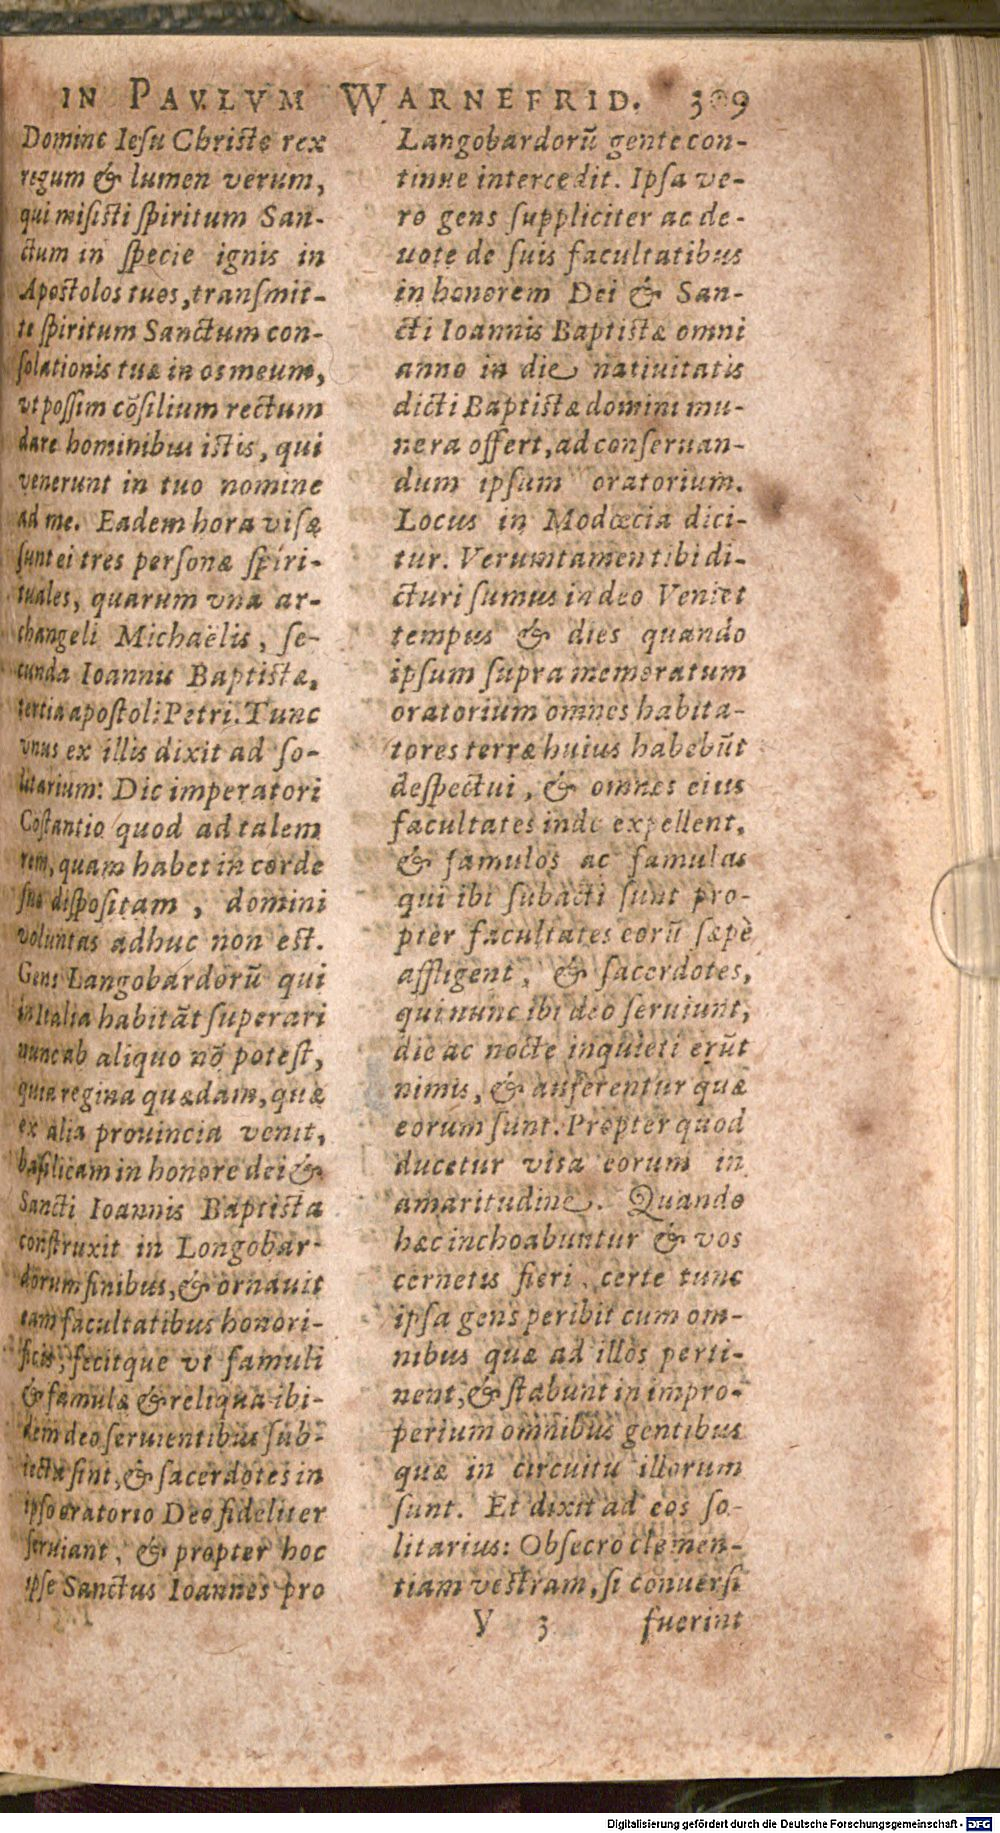 IN PAVLVM WARNEFRID. 309
Domine Iesu Christe rex
regum & lumen verum,
qui misisti spiritum San-
ctum in specie ignis in
Apostolos tuos, transmit-
te spiritum Sanctum con-
solationis tuæ in os meum,
vt possim cōsilium rectum
dare hominibus istis, qui
venerunt in tuo nomine
ad me. Eadem hora visæ
sunt ei tres personæ spiri-
tuales, quarum vna ar-
changeli Michaëlis, se-
cunda Ioannis Baptistæ,
tertia apostoli Petri. Tunc
vnus ex illis dixit ad so-
litarium: Dic imperatori
Cōstantio quod ad talem
rem, quam habet in corde
suo dispositam, domini
voluntas adhuc non est.
Gens Langobardorū qui
in Italia habitāt superari
nunc ab aliquo nō potest,
quia regina quædam, quæ
ex alia prouincia venit,
basilicam in honore dei &
Sancti Ioannis Baptista
construxit in Longobar-
dorum finibus, & ornauit
eam facultatibus honori-
ficis, fecitque vt famuli
& famulæ & reliqua ibi-
dem deo seruientibus sub-
iecta sint, & sacerdotes in
ipso oratorio Deo fideliter
seruiant, & propter hoc
ipse Sanctus Ioannes pro
Langobardorū gente con-
tinue intercedit. Ipsa ve-
ro gens suppliciter ac de-
uote de suis facultatibus
in honorem Dei & San-
cti Ioannis Baptistæ omni
anno in die natiuitatis
dicti Baptistæ domini mu-
nera offert, ad conseruan-
dum ipsum oratorium.
Locus in Modœcia dici-
tur. Verumtamen tibi di-
cturi sumus in deo Veniet
tempus & dies quando
ipsum supra memoratum
oratorium omnes habita-
tores terræ huius habebūt
despectui, & omnes eius
facultates inde expellent,
& famulos ac famulas
qui ibi subacti sunt pro-
pter facultates eorū sæpè
affligent, & sacerdotes,
qui nunc ibi deo seruiunt,
die ac nocte inquieti erūt
nimis, & auferentur quæ
eorum sunt. Propter quod
ducetur vita eorum in
amaritudine. Quando
hæc inchoabuntur & vos
cernetis fieri, certe tunc
ipsa gens peribit cum om-
nibus quæ ad illos perti-
nent, & stabunt in impro-
perium omnibus gentibus
quæ in circuitu illorum
sunt. Et dixit ad eos so-
litarius: Obsecro clemen-
tiam vestram, si conuersi
V 3 fuerint
Digitalisierung gefördert durch die Deutsche Forschungsgemeinschaft - DFG